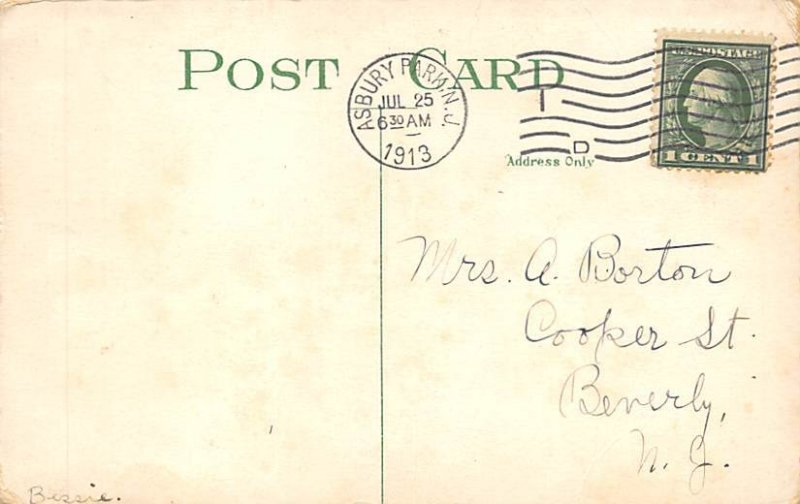 POST CARD
ASBURY PARK, N.J.
JUL 25
6 30 AM
1913
U.S. POSTAGE
1 CENT 1
I
D
Address Only
Mrs. A. Borton
Cooper St.
Beverly,
N. J.
Bessie.